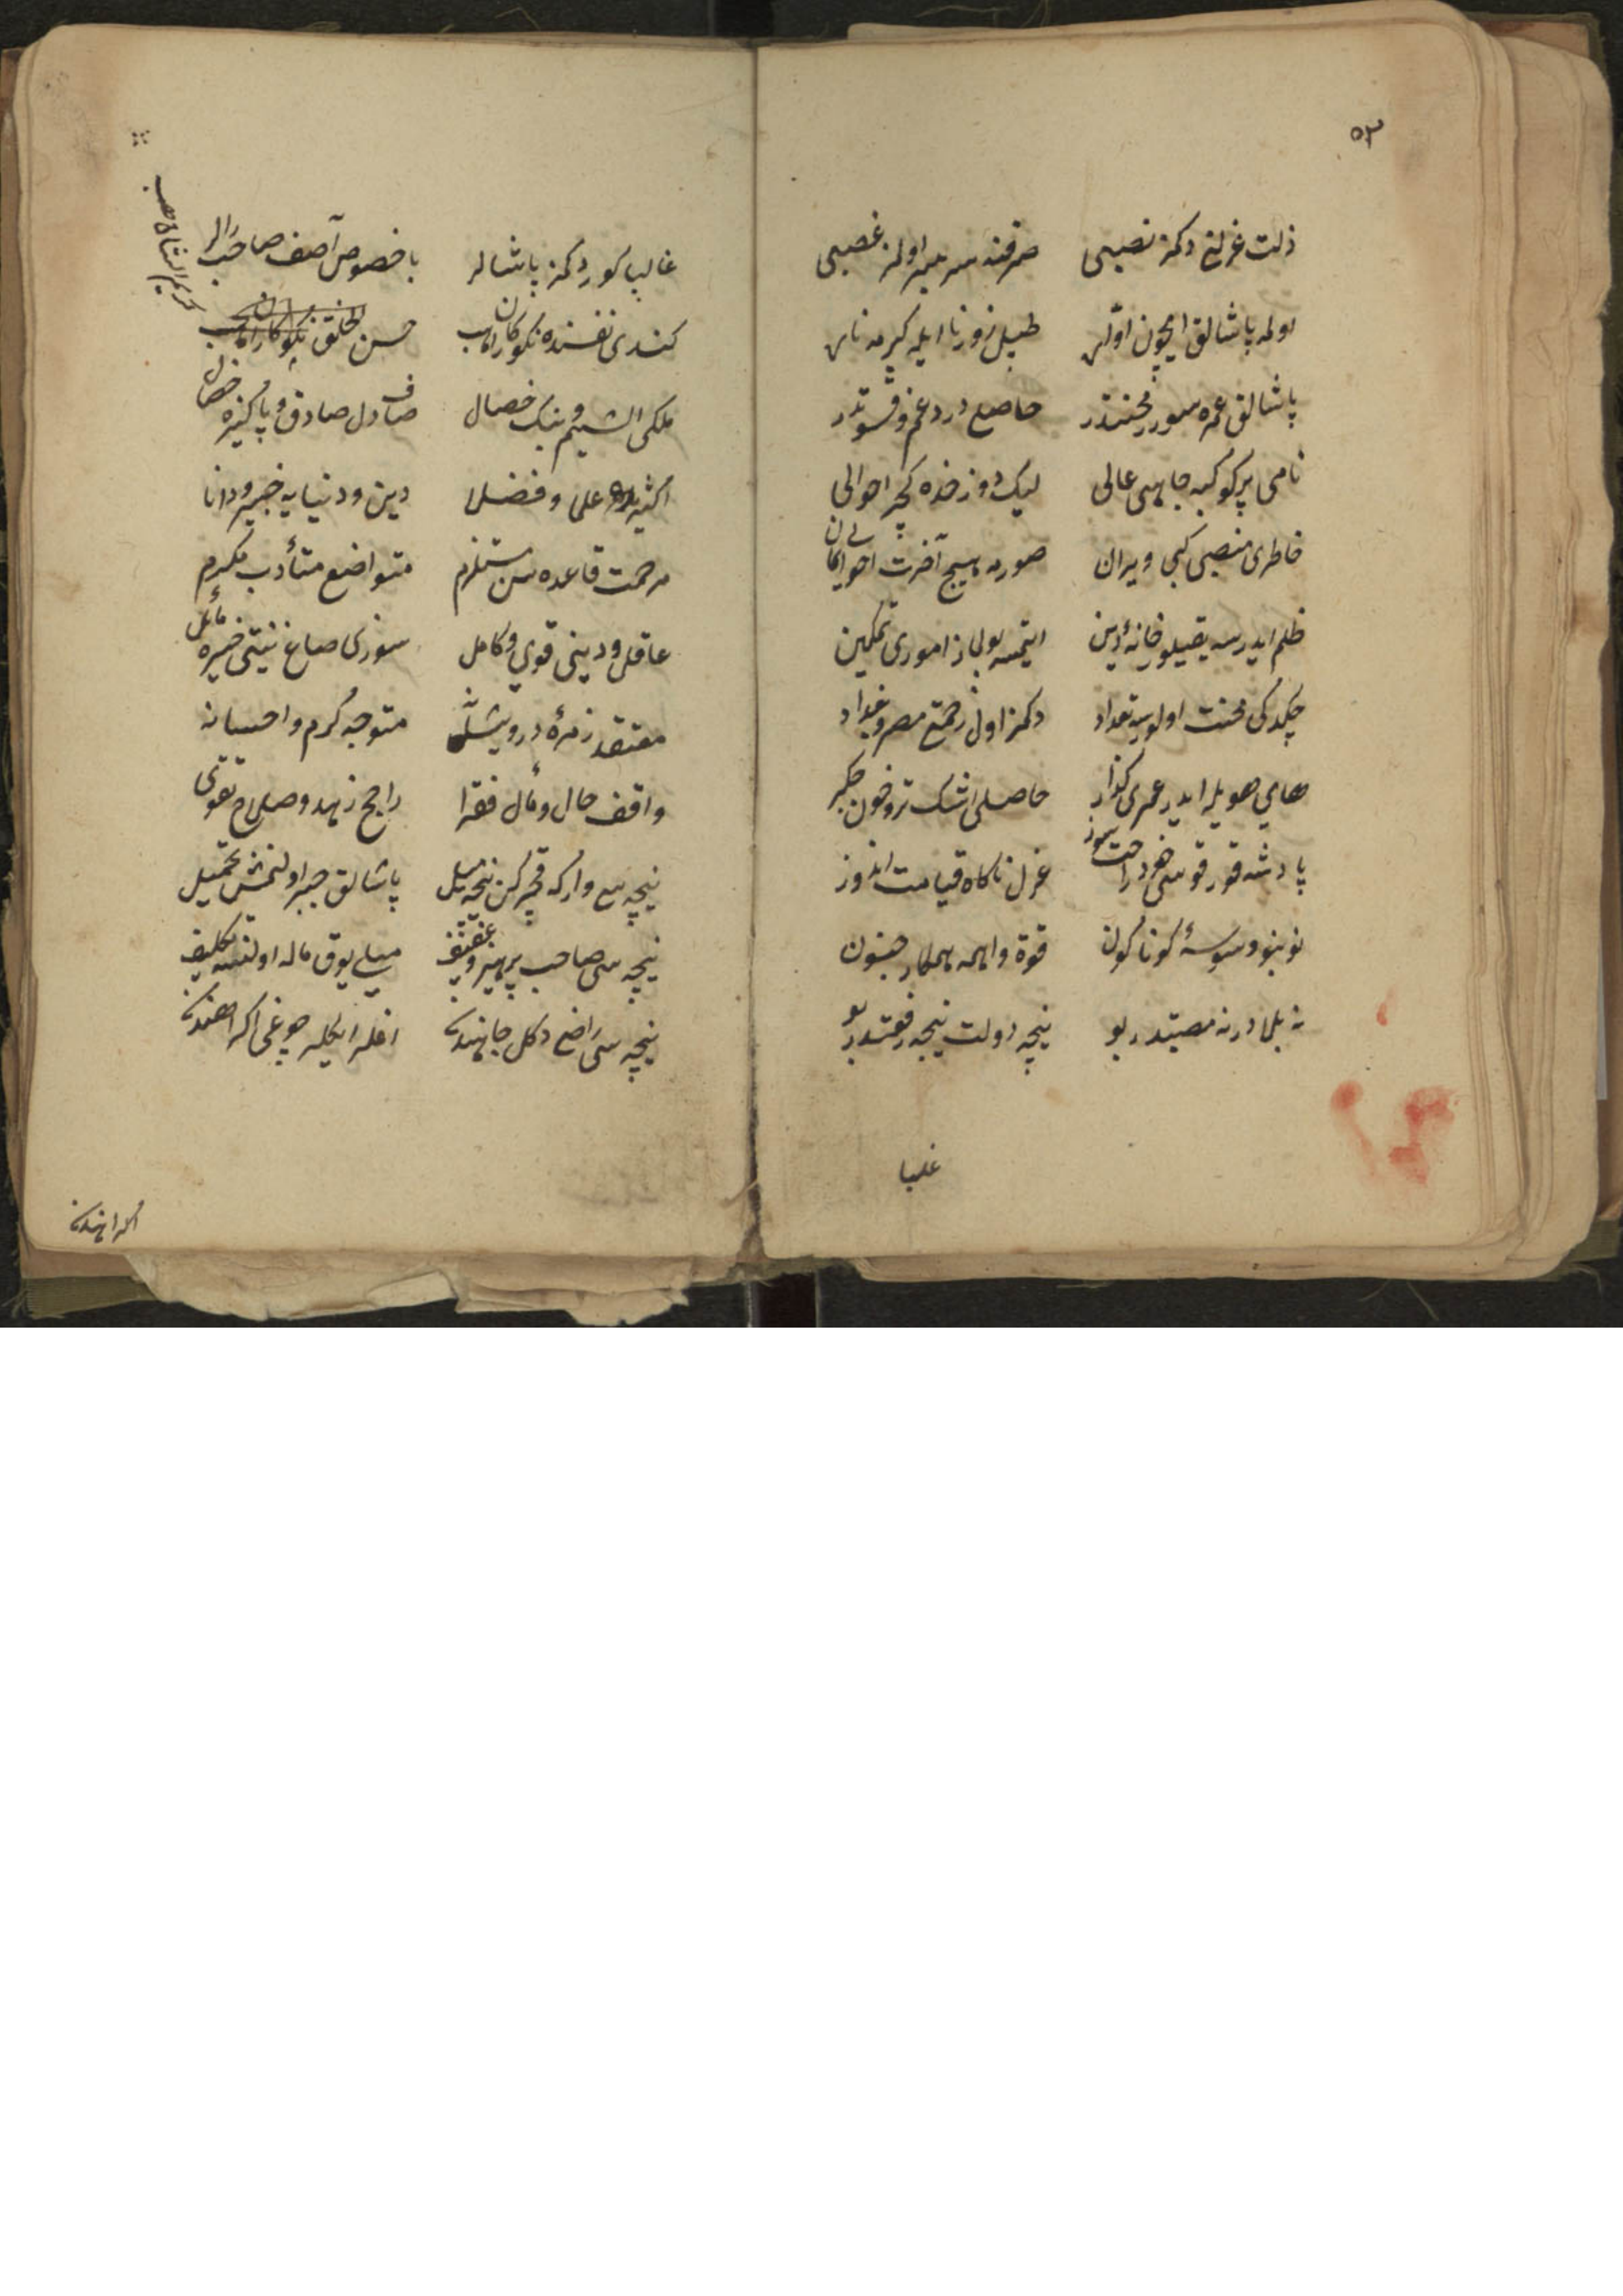 ۵۳
ذلت عزلنی دكمز نصیبی صرفنه سر بسر اولمز غصبی
اولمه پاشالق ایچون اول طبل زورنا ایله كیرمه
پاشالق عمره سورر محنتدر حاصلی درد و غم و قسوتدر
نامی پر كوكبه جاهی عالی لیك دوزخده كچر احوالی
خاطری منصبی كبی ویران صورمه هیچ آخرت احوالن
ظلم ایدرسه یقیلور خانهٔ دین ایتمسه بولماز اموری تمكین
چكدكی محنت اولورسه تعداد دكمز اول زحمته مصر و بغداد
های هویله ایدر عمری كذار حاصلی اشك تر و خون جكر
پادشه قورقوسی هر دم راحت سوز عزل ناكاه قیامت اندوز
نو بنو وسوسهٔ كوناكون قوة واهمه همكار جنون
نه بلادر نه مصیبتدر بو نیچه دولت نیچه رفعتدر بو
غالبا
غالبا كوردكمز پاشالر باخصوص آصف صاحب رالر
كندی نفسنده نكوكار حسن الخلق
ملكی الشیم و نیك خصال صاف دل صادق و پاكیزه
اكثری علما و فضلا دین و دنیایه خبیر و دانا
مرحمت قاعده سن مستلزم متواضع متأدب مكرم
عاقل و دینی قوی و كامل سوزی صاغ نیتی خیره مائل
معتقد زمرهٔ درویشانه متوجه كرم و احسانه
واقف حال و مآل فقرا راجح زهد و صلاح و تقوی
نیچه سی وار كه قچركن نیچه میل پاشالق جبرا اولنمش تحمیل
نیچه سی صاحب پرهیز و عفیف میلی یوق ماله اولنسه تكلیف
نیچه سی راضی دكل جانندن
اكراهندن